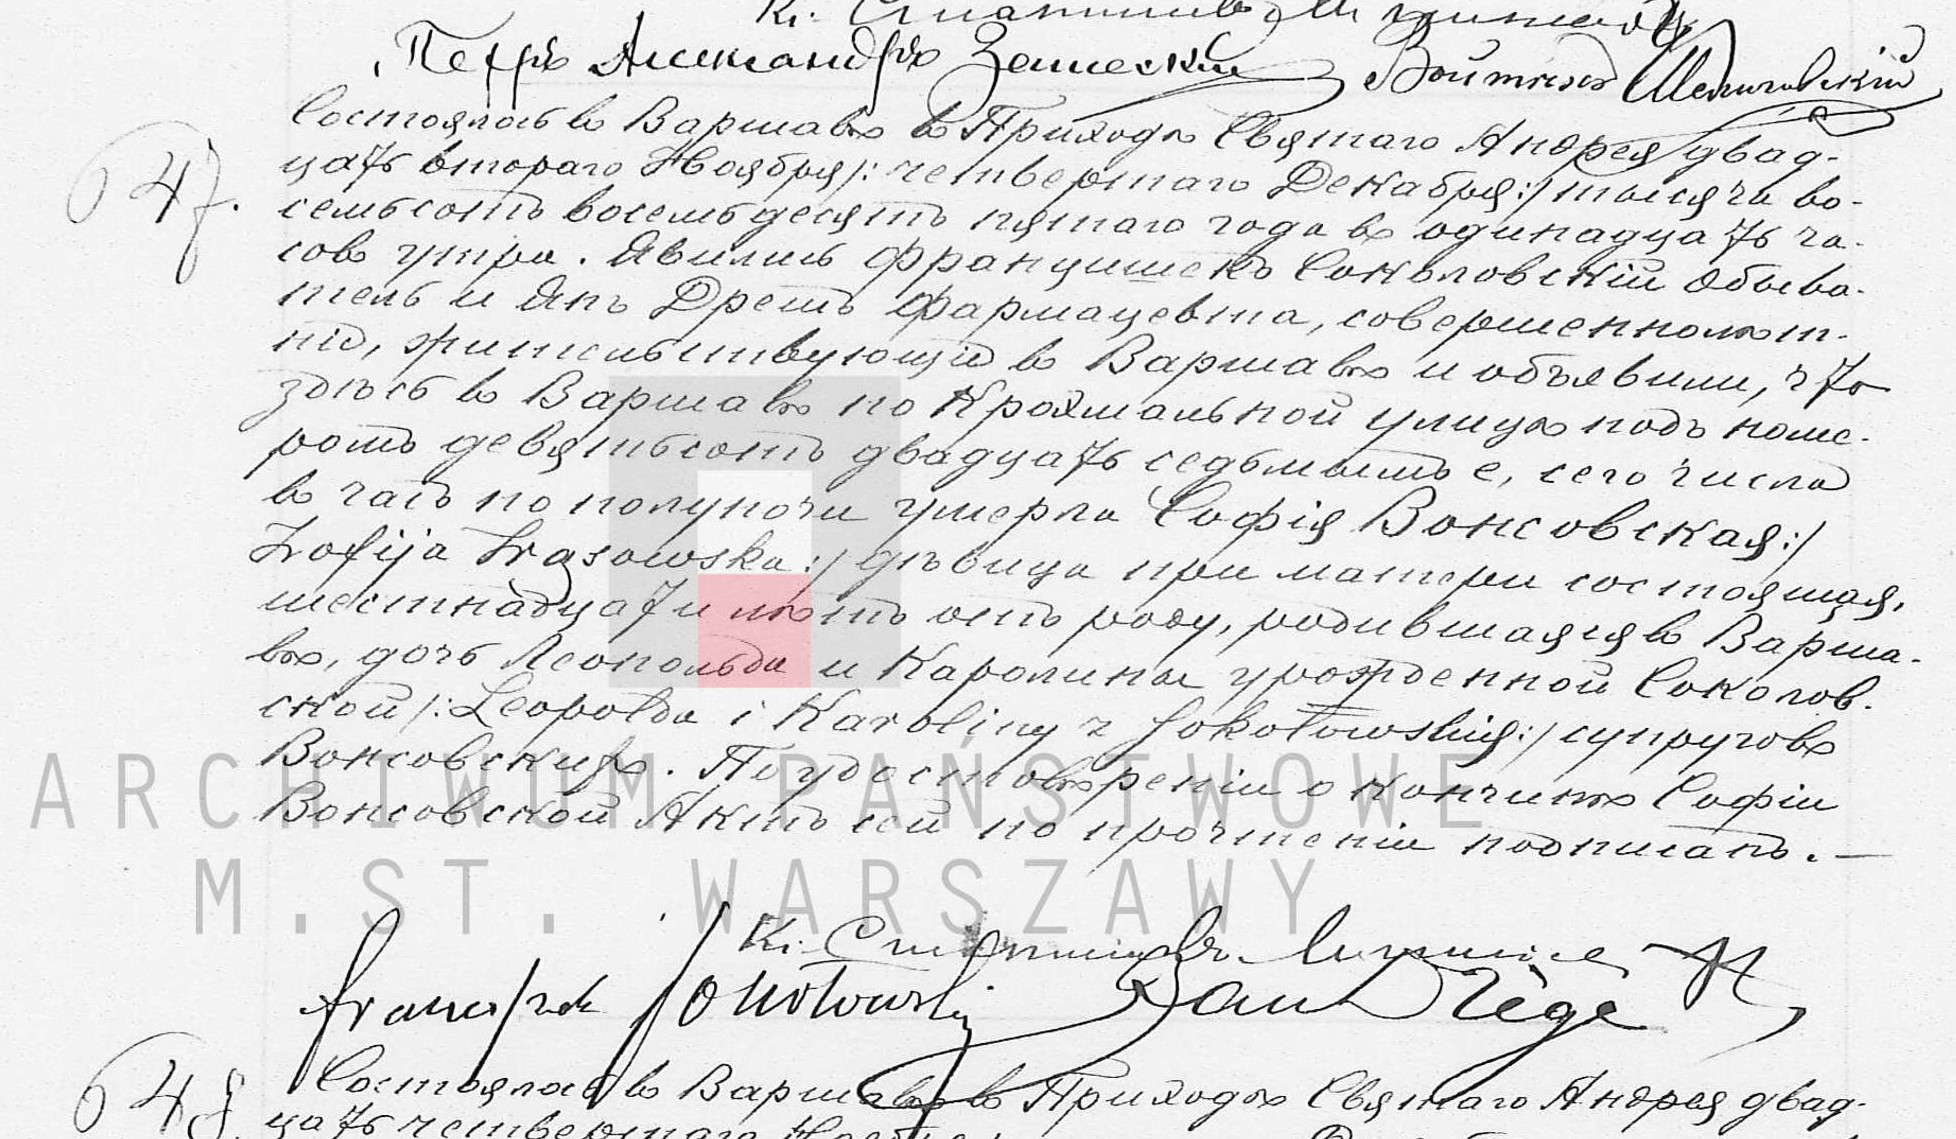 Петръ Александръ Залескій Войтехъ
647.
Состоялось въ Варшавѣ въ Приходѣ Святаго Андрея двад-
цать втораго Ноября /: четвертаго Декабря :/ тысяча во-
семьсотъ восемьдесятъ пятаго года въ одинадцать ча-
совъ утра. Явились Францишекъ Соколовскій Обыва-
тель и Янъ фармацевта, совершеннолѣт-
ніе, жительствующіе въ Варшавѣ и объявили, что
здѣсь въ Варшавѣ по Крохмальной улицѣ подъ номе-
ромъ девятьсотъ двадцать седьмымъ е, сего числа
въ часъ по полуночи умерла Софія Вонсовская :/
Zofija Wąsowska :/ дѣвица при матери состоящая,
шестнадцати лѣтъ отъ роду, родившаяся въ Варша-
вѣ, дочь Леопольда и Каролины урожденной Соколов-
ской /: Leopolda i Karoliny z Sokołowskich :/ супруговъ
Вонсовскихъ. По удостовѣреніи о кончинѣ Софіи
Вонсовской Актъ сей по прочтеніи подписанъ. —
Franciszek Sokołowski Jan Drège
648.
Состоялось въ Варшавѣ въ Приходѣ Святаго Андрея двад-
цать четвертаго
ARCHIWUM PAŃSTWOWE
M.ST. WARSZAWY